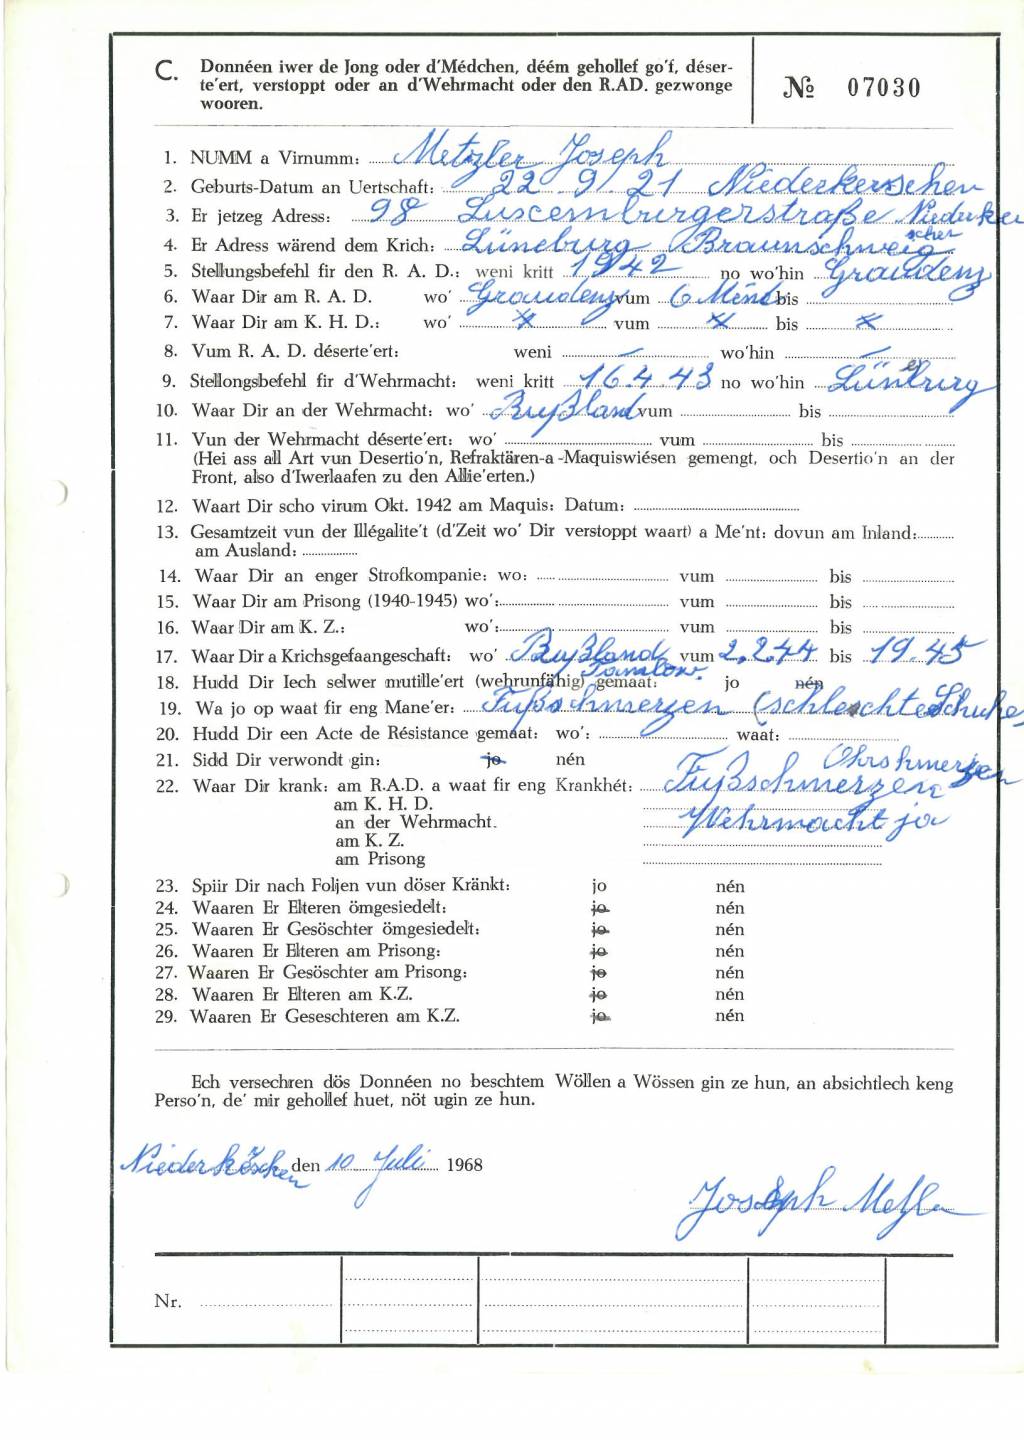 C. Donnéen iwer de Jong oder d'Médchen, déém gehollef go'f, déser-
te'ert, verstoppt oder an d'Wehrmacht oder den R.AD. gezwonge
wooren.
№ 07030
1. NUMM a Virnumm: Metzler Joseph
2. Geburts-Datum an Uertschaft: 22.9.21 Niederkerschen
3. Er jetzeg Adress: 98 Luxemburgerstraße Niederker
schen
4. Er Adress wärend dem Krich: Lüneburg Braunschweig
5. Stellungsbefehl fir den R. A. D.: weni kritt 1942 no wo'hin Graudenz
6. Waar Dir am R. A. D. wo' Graudenz vum 6 Mend bis
7. Waar Dir am K. H. D.: wo' x vum x bis x
8. Vum R. A. D. déserte'ert: weni — wo'hin —
9. Stellongsbefehl fir d'Wehrmacht: weni kritt 16.4.43 no wo'hin Lüneburg
10. Waar Dir an der Wehrmacht: wo' Rußland vum bis
11. Vun der Wehrmacht déserte'ert: wo' vum bis
(Hei ass all Art vun Desertio'n, Refraktären-a-Maquiswiésen gemengt, och Desertio'n an der
Front, also d'Iwerlaafen zu den Allie'erten.)
12. Waart Dir scho virum Okt. 1942 am Maquis: Datum:
13. Gesamtzeit vun der Illégalite't (d'Zeit wo' Dir verstoppt waart) a Me'nt: dovun am Inland:
am Ausland:
14. Waar Dir an enger Strofkompanie: wo: vum bis
15. Waar Dir am Prisong (1940-1945) wo': vum bis
16. Waar Dir am K. Z.: wo': vum bis
17. Waar Dir a Krichsgefaangeschaft: wo' Rußland vum 2.2.44 bis 19.45
Tambow.
18. Hudd Dir Iech selwer mutille'ert (wehrunfähig) gemaat: jo nén
19. Wa jo op waat fir eng Mane'er: Fußschmerzen (schlechte Schuhe
20. Hudd Dir een Acte de Résistance gemaat: wo': waat:
21. Sidd Dir verwondt gin: jo nén
Ohrschmerzen
22. Waar Dir krank: am R.A.D. a waat fir eng Krankhét: Fußschmerzen
am K. H. D.
an der Wehrmacht. Wehrmacht ja
am K. Z.
am Prisong
23. Spiir Dir nach Foljen vun döser Kränkt: jo nén
24. Waaren Er Elteren ömgesiedelt: jo nén
25. Waaren Er Gesöschter ömgesiedelt: jo nén
26. Waaren Er Elteren am Prisong: jo nén
27. Waaren Er Gesöschter am Prisong: jo nén
28. Waaren Er Elteren am K.Z. jo nén
29. Waaren Er Geseschteren am K.Z. jo nén
Ech versechren dös Donnéen no beschtem Wöllen a Wössen gin ze hun, an absichtlech keng
Perso'n, de' mir gehollef huet, nöt ugin ze hun.
Niederkäschen den 10 Juli 1968
Joseph Metzler
Nr.